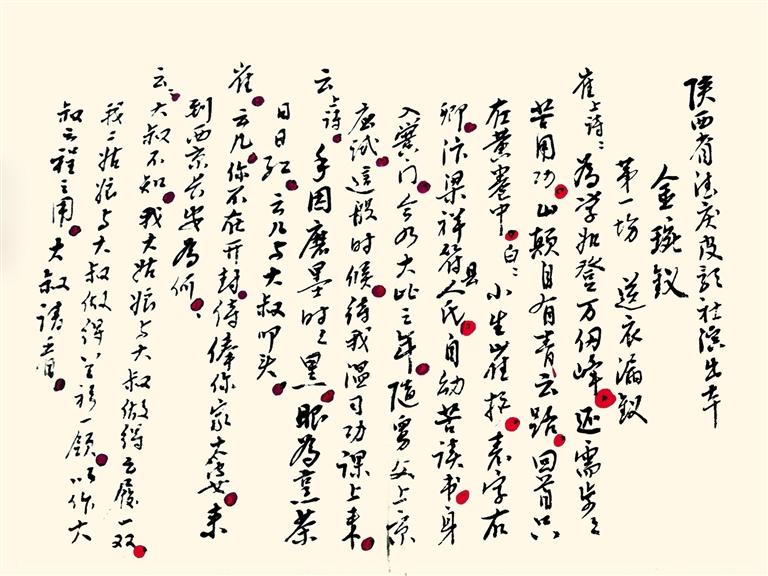 陕西省德庆皮影社演出本
金琬钗
第一场 送衣漏钗
崔上诗：为学如登万仞峰，还需步步
苦用功，山颠自有青云路，回首只
在黄卷中。白：小生崔护，表字右
卿，汴梁祥符县人氏，自幼苦读书，身
入黉门，今乃大比之年，随男父上京
应试，这般时候，待我温习功课，上来。
云上诗 手因磨墨时时黑，眼为熏茶
日日红。云儿与大叔叩头。
崔：云儿，你不在开封侍俸你家太婆，来
到西京长安为何、
云：大叔不知，我大姑娘与大叔做得云履一双，
我二姑娘与大叔做得兰衫一领，以作大
叔云程之用，大叔请看。